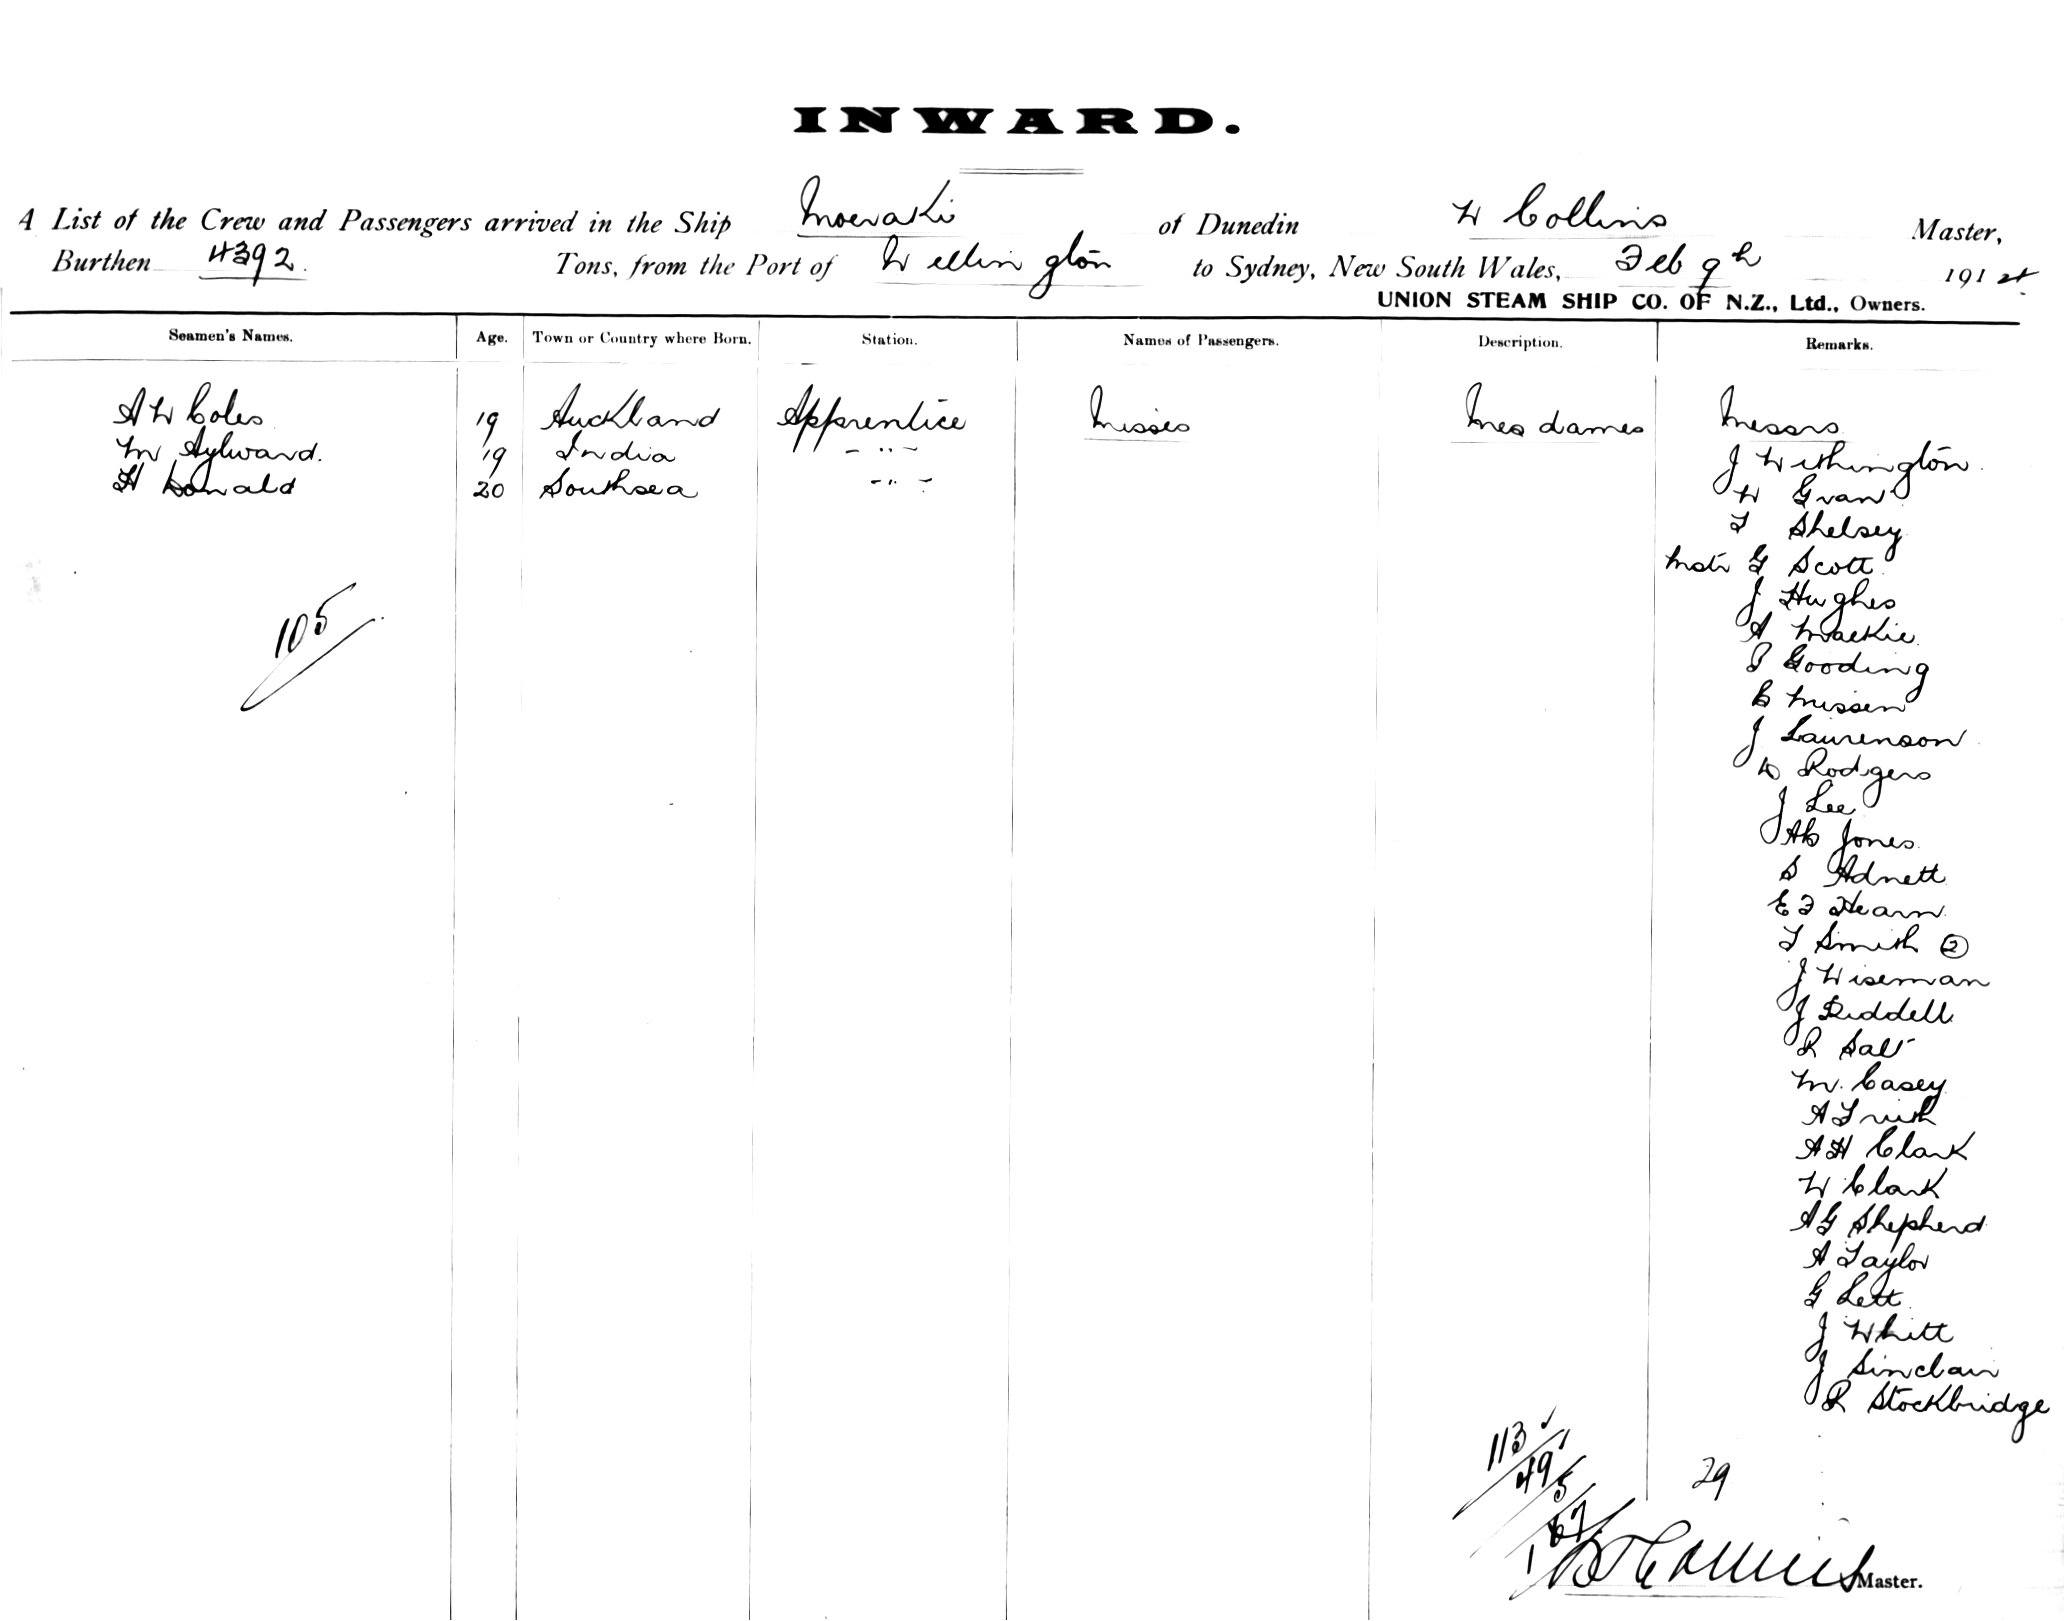 INWARD.
A List of the Crew and Passengers arrived in the Ship Moeraki of Dunedin W Collins Master,
Burthen 4392 Tons, from the Port of Wellington to Sydney, New South Wales, Feb 9th 1914.
UNION STEAM SHIP CO. OF N.Z., Ltd., Owners.
Seamen's Names. Age. Town or Country where Born. Station. Names of Passengers. Description. Remarks.
A W Coles 19 Auckland Apprentice Misses Mesdames Messrs
M Aylward. 19 India - " -
H Donald 20 Southsea - " -
J Withington
W Gran
T Shelsey
Mstr G Scott
J Hughes
A Mackie
Gooding
C Missen
J Laurenson
D Rodgers
J Lee
AC Jones
S Adnett
E F Hearn
T Smith ②
J Wiseman
J Riddell
R Salt
M. Casey
A
A H Clark
W Clark
A G Shepherd
A Taylor
G Lett
J Whitt
J Sinclair
R Stockbridge
105
113
49
5
167
29
W Collins Master.